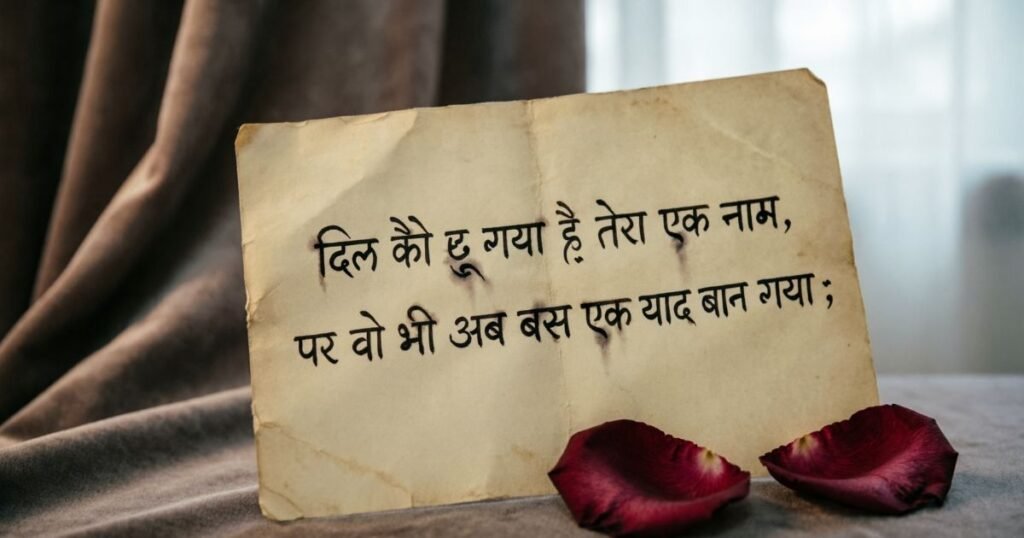 दिल कौे छू गया है़ तेरा एक नाम,
पर वो भी अब बस एक याद बान गया ;